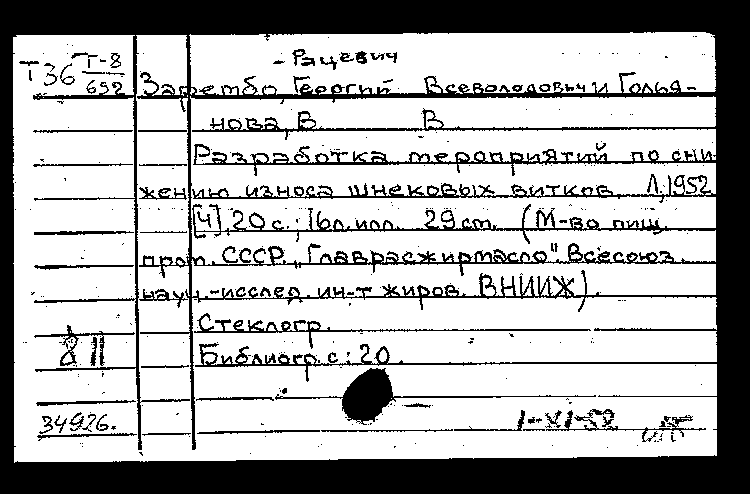 - Рацевич
Т36 Т-8/692 Зарембо, Георгий Всеволодович и Голья-
нова, В В
Разработка мероприятий по сни
жению износа шнековых витков. Л, 1952
[4], 20 с.; 16л. илл. 29 ст. (М-во пищ.
пром. СССР. "Главрасжирмасло". Всесоюз.
науч.-исслед. ин-т жиров. ВНИИЖ).
Стеклогр.
811
Библиогр. с: 20.
34926. 1-XI-52